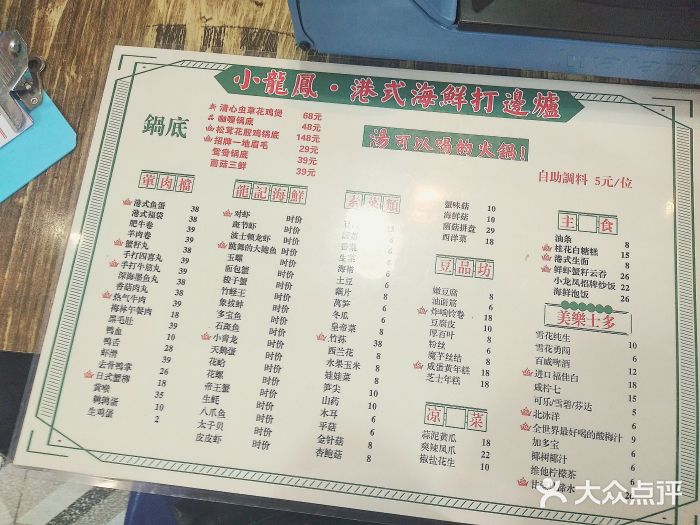 小龍鳳·港式海鮮打邊爐
鍋底
清心虫草花鸡煲 68元
咖喱锅底 48元
松茸花胶鸡锅底 148元
招牌一地眉毛 29元
鸳鸯锅底 39元
菌菇三鲜 39元
湯可以喝的火鍋!
自助調料 5元/位
葷肉檔
港式鱼蛋 38
港式福袋 38
肥牛卷
羊肉卷
蟹籽丸
手打四喜丸
手打牛筋丸
深海墨鱼丸
香菇肉丸
热气牛肉
梅林午餐肉
黑毛肚
鸭血
鸭舌
虾滑
去骨鸭掌
日式蟹柳
黄喉
鹌鹑蛋 10
生鸡蛋 2
龍記海鮮
对虾 时价
斑节虾 时价
波士顿龙虾 时价
跳舞的大鲍鱼 时价
玉螺 时价
面包蟹 时价
梭子蟹 时价
竹蛏王 时价
象拔蚌 时价
多宝鱼 时价
石斑鱼 时价
小青龙 时价
天鹅蛋 时价
花蛤 时价
花螺 时价
帝王蟹 时价
生蚝 时价
八爪鱼 时价
太子贝 时价
皮皮虾 时价
素菜類
生菜
海裙
土豆
藕片
莴笋
冬瓜
皇帝菜
竹荪 38
西兰花
水果玉米
娃娃菜
笋尖
山药
木耳
平菇
金针菇
杏鲍菇 8
蟹味菇 10
海鲜菇 10
菌菇拼盘 29
西洋菜 18
豆品坊
嫩豆腐 8
油面筋 8
炸响铃卷 18
豆腐皮 10
厚百叶 8
粉丝 8
魔芋丝结 8
咸蛋黄年糕 18
芝士年糕 18
凉菜
蒜泥黄瓜 18
爽辣凤爪 22
椒盐花生 10
主食
油条 8
桂花白糖糕 15
港式生面 8
鲜虾蟹籽云吞 26
小龙凤招牌炒饭 22
海鲜泡饭 26
美樂士多
雪花纯生 10
雪花勇闯
百威啤酒
进口福佳白
咸柠七
可乐/雪碧/芬达
北冰洋
全世界最好喝的酸梅汁
加多宝
椰树椰汁
维他柠檬茶
大众点评